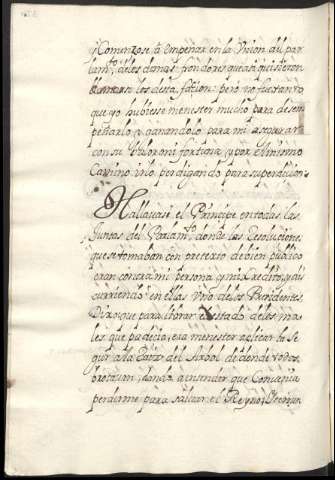 y Comenzose a Empeñar en la Vnion del par
lam.to, y de los demas frondores que assi quisieron
llamarse los desta façion: pero no fue tanto
que yo hubiesse menester mucho para desem
peñarlo, y ganandolo para mi assegurar
con su Valor mi fortuna, y por el mismo
Camino irlo podigando para su perdicion.
Hallauase el Principe en todas las
Juntas del Parlam.to donde las Resoluciones
que se tomaban con pretexto de bien publico
eran contra mi persona y mi credito, y dis
curriendo en ellas Vno de los Presidentes,
Dixo que para llorar el estado de los ma
les que padecia, era menester aplicar la Se
gur a la Raiz del Arbol de donde todos
brotauan, dando a entender que Conuenia
perderme para saluar el Reyno;